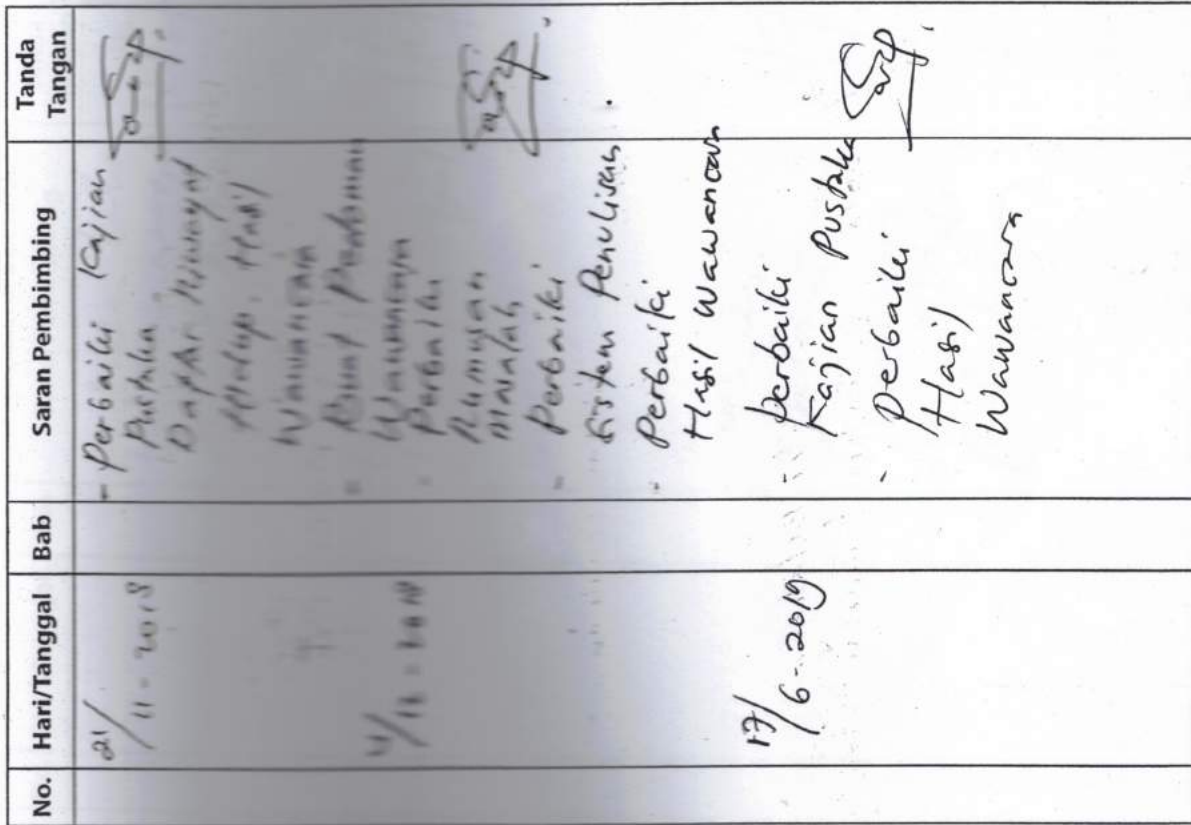 No. Hari/Tanggal Bab Saran Pembimbing Tanda Tangan
21/11-2018
- Perbaiki Kajian
Pustaka
Daftar Riwayat
Hidup. Hasil
Wawancara
- Buat Pedoman
Wawancara
- Perbaiki
Rumusan
Masalah
- Perbaiki
Sistem Penulisan
- Perbaiki
Hasil Wawancara
17/6-2019
- Perbaiki
Kajian Pustaka
- Perbaiki
Hasil
Wawancara